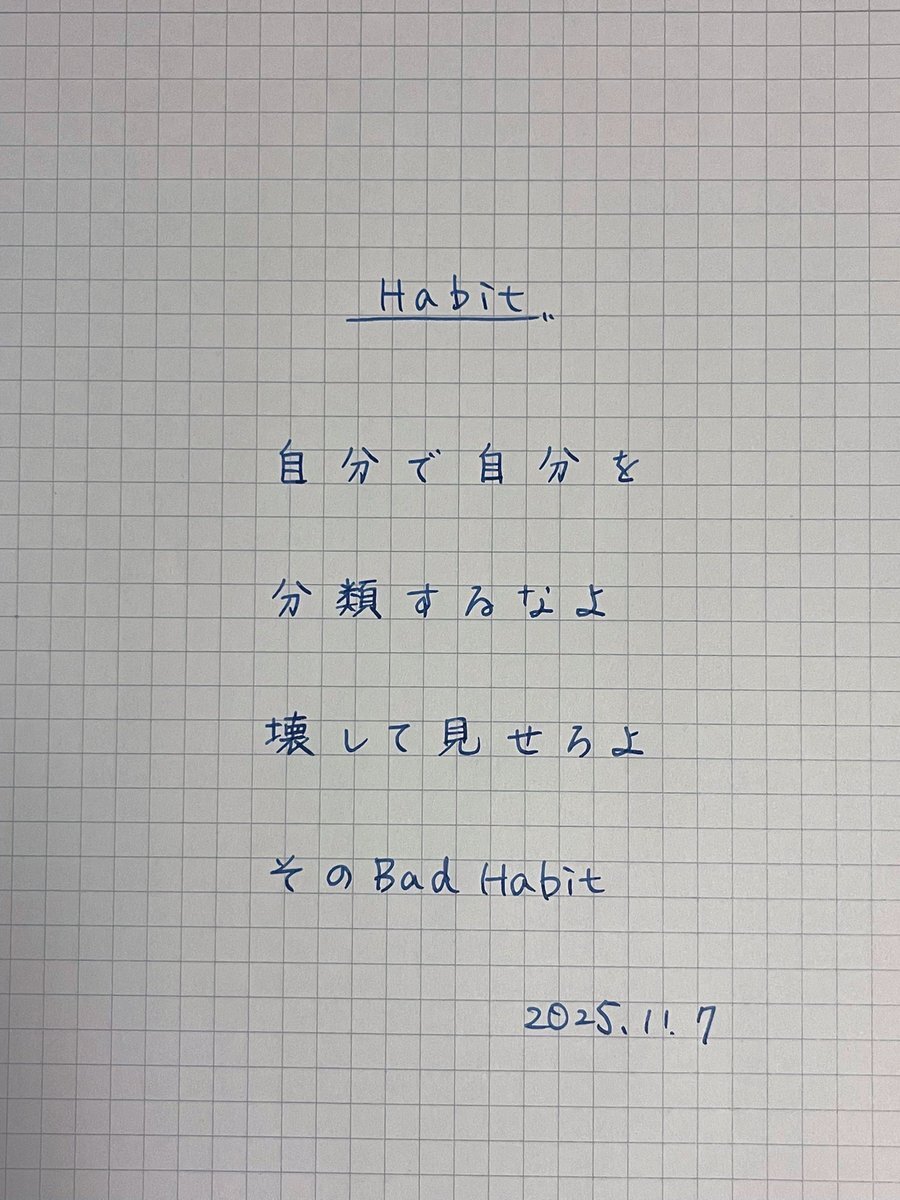 Habit
自分で自分を
分類するなよ
壊して見せろよ
そのBad Habit
2025.11.7